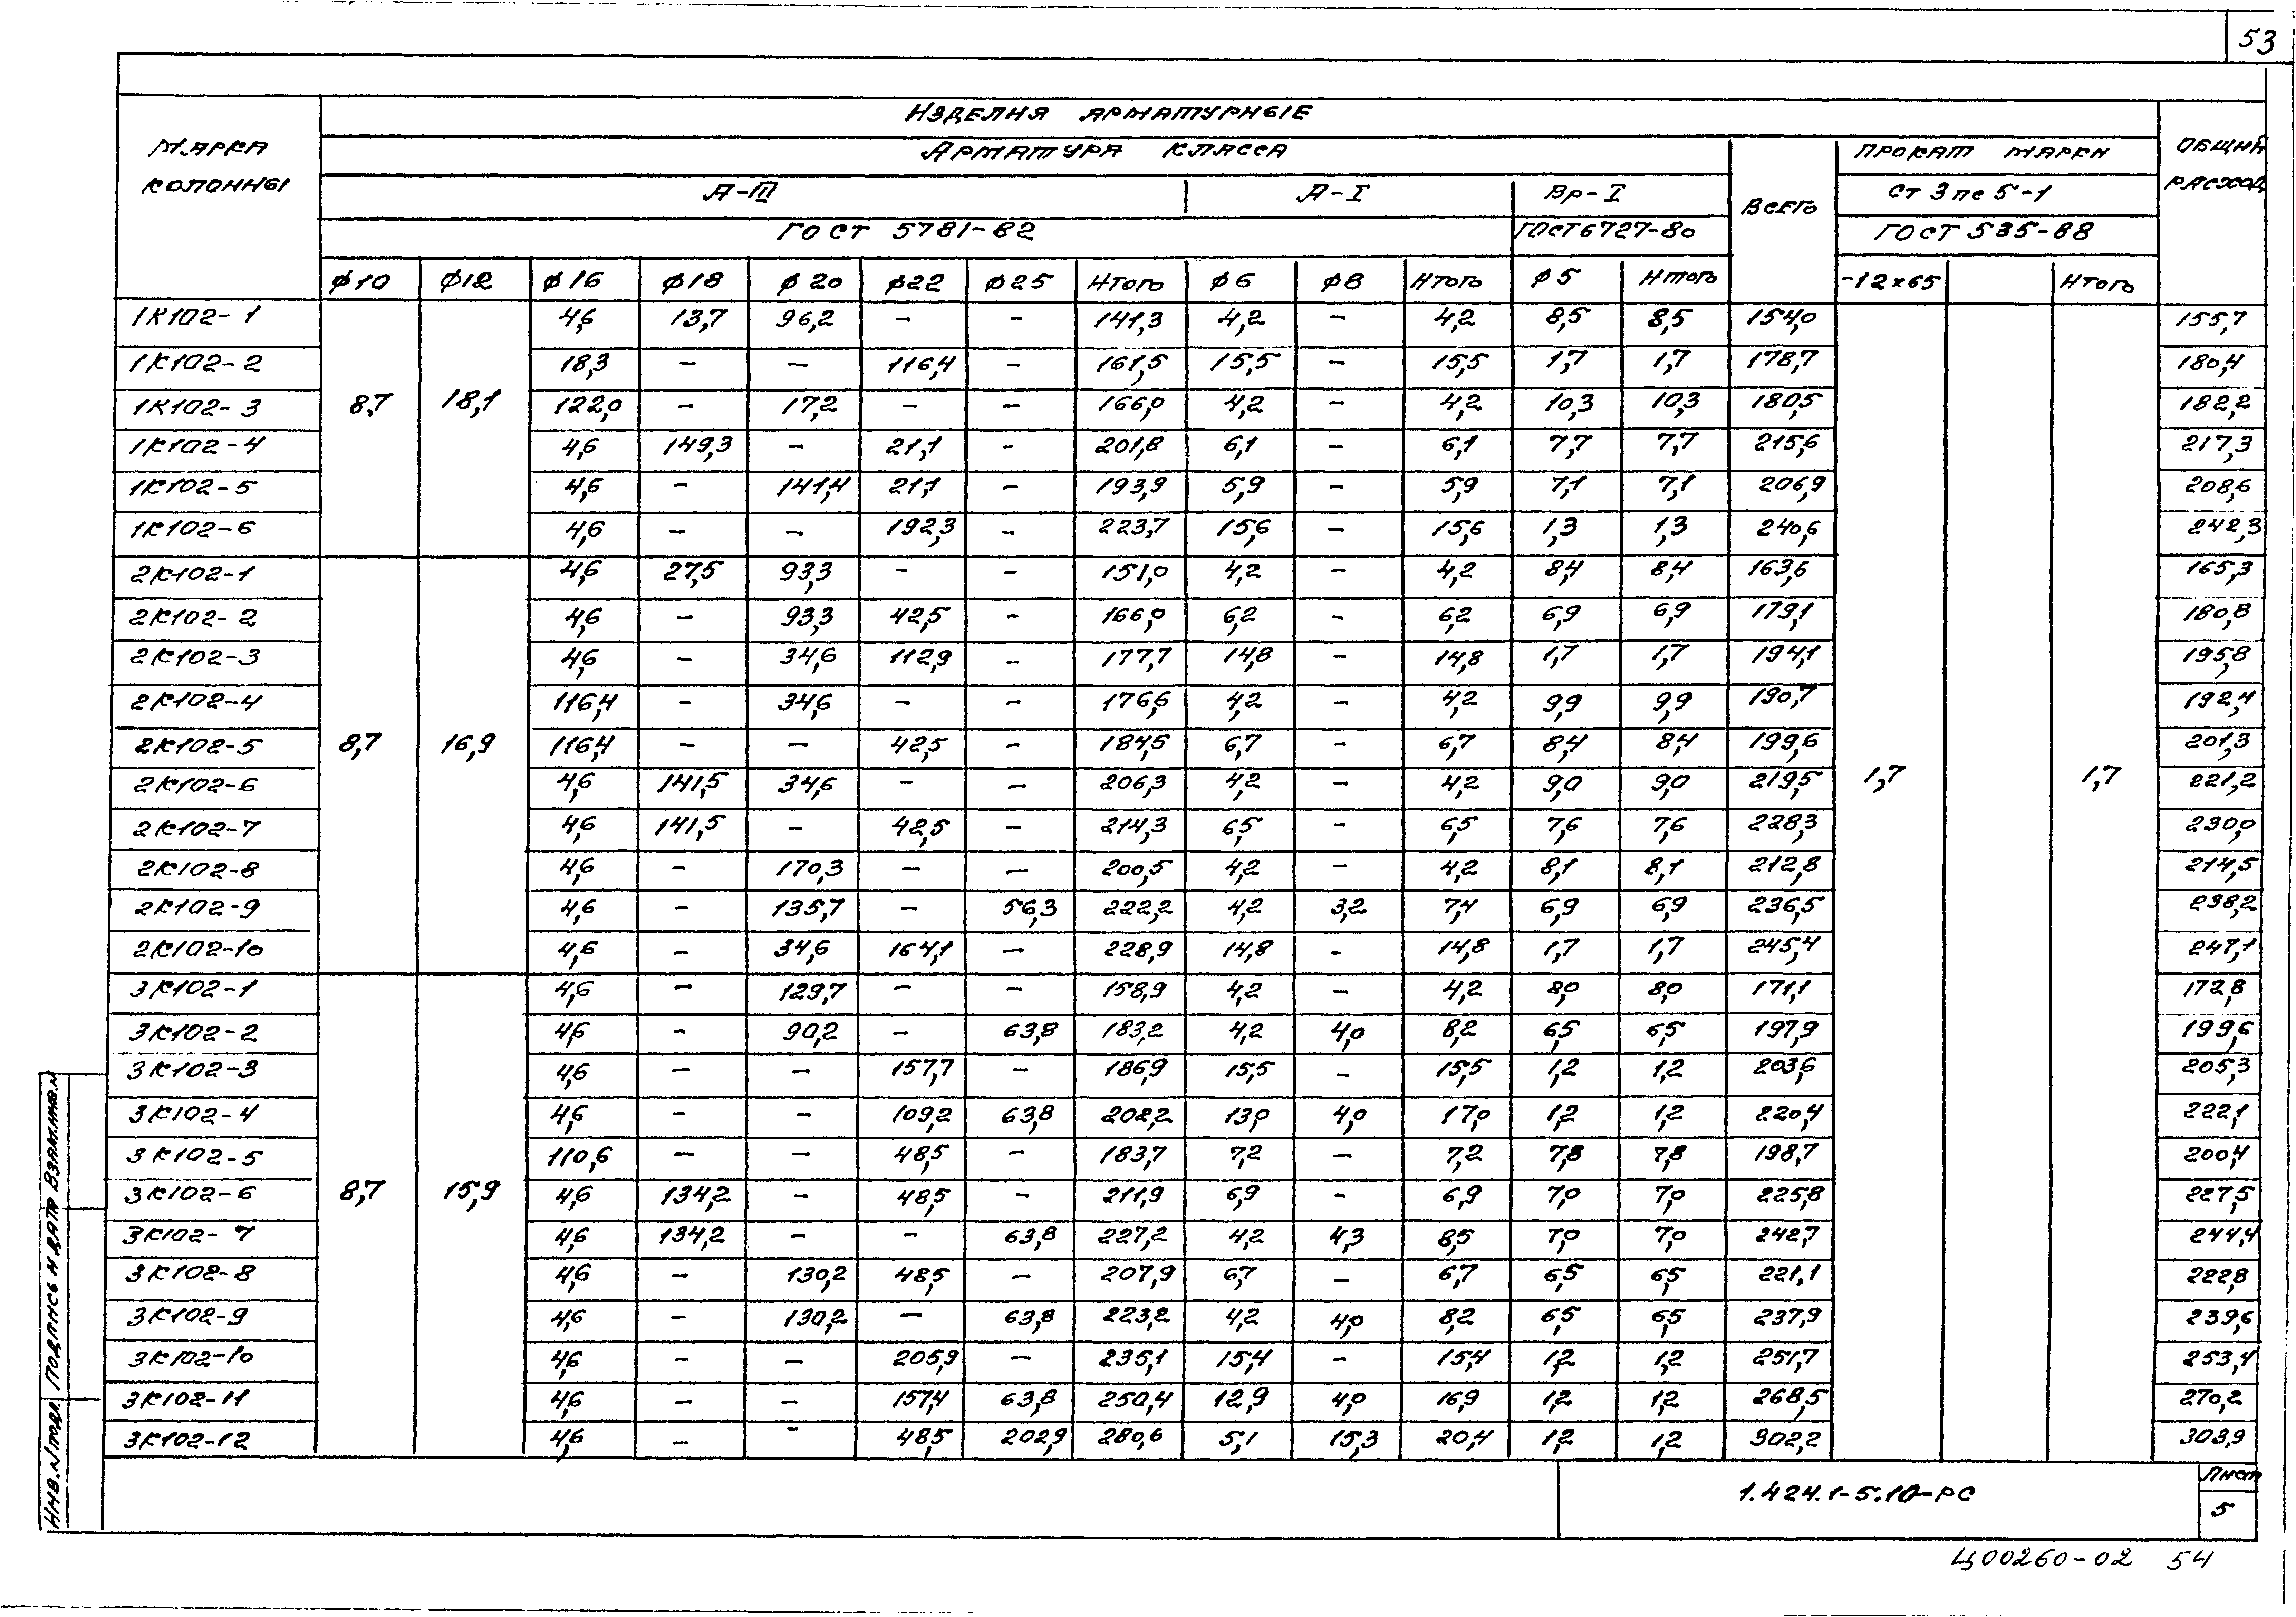 53
Изделия арматурные
Марка колонны
Арматура класса
Всего
Прокат марки
Общий расход
А-III
А-I
Вр-I
Ст 3 пс 5-1
ГОСТ 5781-82
ГОСТ 6727-80
ГОСТ 535-88
φ10 φ12 φ16 φ18 φ20 φ22 φ25 Итого φ6 φ8 Итого φ5 Итого -12×65 Итого
1К102-1 4,6 13,7 96,2 – – 141,3 4,2 – 4,2 8,5 8,5 154,0 155,7
1К102-2 18,3 – – 116,4 – 161,5 15,5 – 15,5 1,7 1,7 178,7 180,4
1К102-3 8,7 18,1 122,0 – 17,2 – – 166,0 4,2 – 4,2 10,3 10,3 180,5 182,2
1К102-4 4,6 149,3 – 21,1 – 201,8 6,1 – 6,1 7,7 7,7 215,6 217,3
1К102-5 4,6 – 141,4 21,1 – 193,9 5,9 – 5,9 7,1 7,1 206,9 208,6
1К102-6 4,6 – – 192,3 – 223,7 15,6 – 15,6 1,3 1,3 240,6 242,3
2К102-1 4,6 27,5 93,3 – – 151,0 4,2 – 4,2 8,4 8,4 163,6 165,3
2К102-2 4,6 – 93,3 42,5 – 166,0 6,2 – 6,2 6,9 6,9 179,1 180,8
2К102-3 4,6 – 34,6 112,9 – 177,7 14,8 – 14,8 1,7 1,7 194,1 195,8
2К102-4 116,4 – 34,6 – – 176,6 4,2 – 4,2 9,9 9,9 190,7 192,4
2К102-5 8,7 16,9 116,4 – – 42,5 – 184,5 6,7 – 6,7 8,4 8,4 199,6 201,3
2К102-6 4,6 141,5 34,6 – – 206,3 4,2 – 4,2 9,0 9,0 219,5 1,7 1,7 221,2
2К102-7 4,6 141,5 – 42,5 – 214,3 6,5 – 6,5 7,6 7,6 228,3 230,0
2К102-8 4,6 – 170,3 – – 200,5 4,2 – 4,2 8,1 8,1 212,8 214,5
2К102-9 4,6 – 135,7 – 56,3 222,2 4,2 3,2 7,4 6,9 6,9 236,5 238,2
2К102-10 4,6 – 34,6 164,1 – 228,9 14,8 – 14,8 1,7 1,7 245,4 247,1
3К102-1 4,6 – 129,7 – – 158,9 4,2 – 4,2 8,0 8,0 171,1 172,8
3К102-2 4,6 – 90,2 – 63,8 183,2 4,2 4,0 8,2 6,5 6,5 197,9 199,6
3К102-3 4,6 – – 157,7 – 186,9 15,5 – 15,5 1,2 1,2 203,6 205,3
3К102-4 4,6 – – 109,2 63,8 202,2 13,0 4,0 17,0 1,2 1,2 220,4 222,1
3К102-5 110,6 – – 48,5 – 183,7 7,2 – 7,2 7,8 7,8 198,7 200,4
3К102-6 8,7 15,9 4,6 134,2 – 48,5 – 211,9 6,9 – 6,9 7,0 7,0 225,8 227,5
3К102-7 4,6 134,2 – – 63,8 227,2 4,2 4,3 8,5 7,0 7,0 242,7 244,4
3К102-8 4,6 – 130,2 48,5 – 207,9 6,7 – 6,7 6,5 6,5 221,1 222,8
3К102-9 4,6 – 130,2 – 63,8 223,2 4,2 4,0 8,2 6,5 6,5 237,9 239,6
3К102-10 4,6 – – 205,9 – 235,1 15,4 – 15,4 1,2 1,2 251,7 253,4
3К102-11 4,6 – – 157,4 63,8 250,4 12,9 4,0 16,9 1,2 1,2 268,5 270,2
3К102-12 4,6 – – 48,5 202,9 280,6 5,1 15,3 20,4 1,2 1,2 302,2 303,9
Инв. N подл. Подпись и дата Взам.инв.N
1.424.1-5.10-РС
Лист
5
Ц00260-02 54